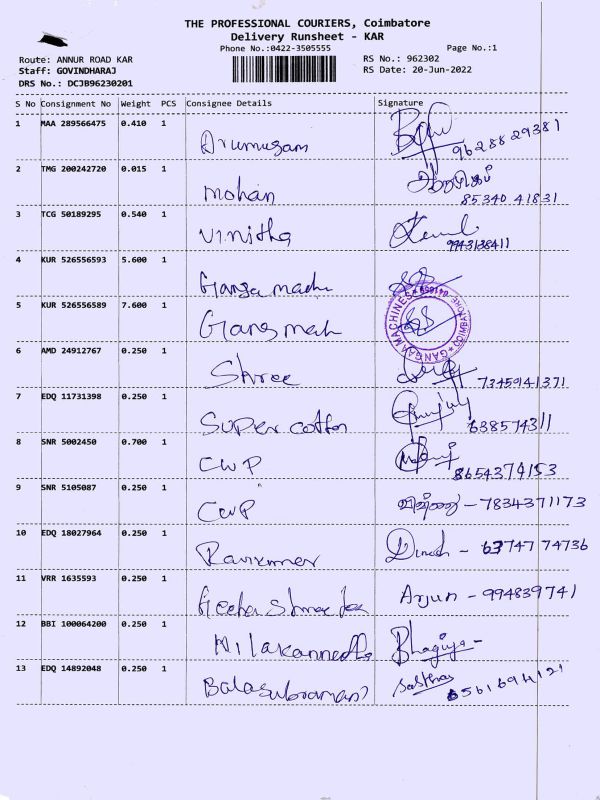 THE PROFESSIONAL COURIERS, Coimbatore
Delivery Runsheet - KAR
Phone No.:0422-3505555 Page No.:1
Route: ANNUR ROAD KAR RS No.: 962302
Staff: GOVINDHARAJ RS Date: 20-Jun-2022
DRS No.: DCJB96230201
S No Consignment No Weight PCS Consignee Details Signature
1 MAA 289566475 0.410 1 Arumugam 9628829381
2 TMG 200242720 0.015 1 mohan 85340 41831
3 TCG 50189295 0.540 1 Vinitha 9943138411
4 KUR 526556593 5.600 1 Ganga
5 KUR 526556589 7.600 1
GANGA MACHINES COIMBATORE
6 AMD 24912767 0.250 1 Shree 7345941371
7 EDQ 11731398 0.250 1 Super cotton 638574311
8 SNR 5002450 0.700 1 CWP 8654374153
9 SNR 5105087 0.250 1 CWP - 7834371173
10 EDQ 18027964 0.250 1 Dinesh - 63747 74736
11 VRR 1635593 0.250 1 Arjun - 994839741
12 BBI 100064200 0.250 1 Bhagiya -
13 EDQ 14892048 0.250 1 Balasubramani